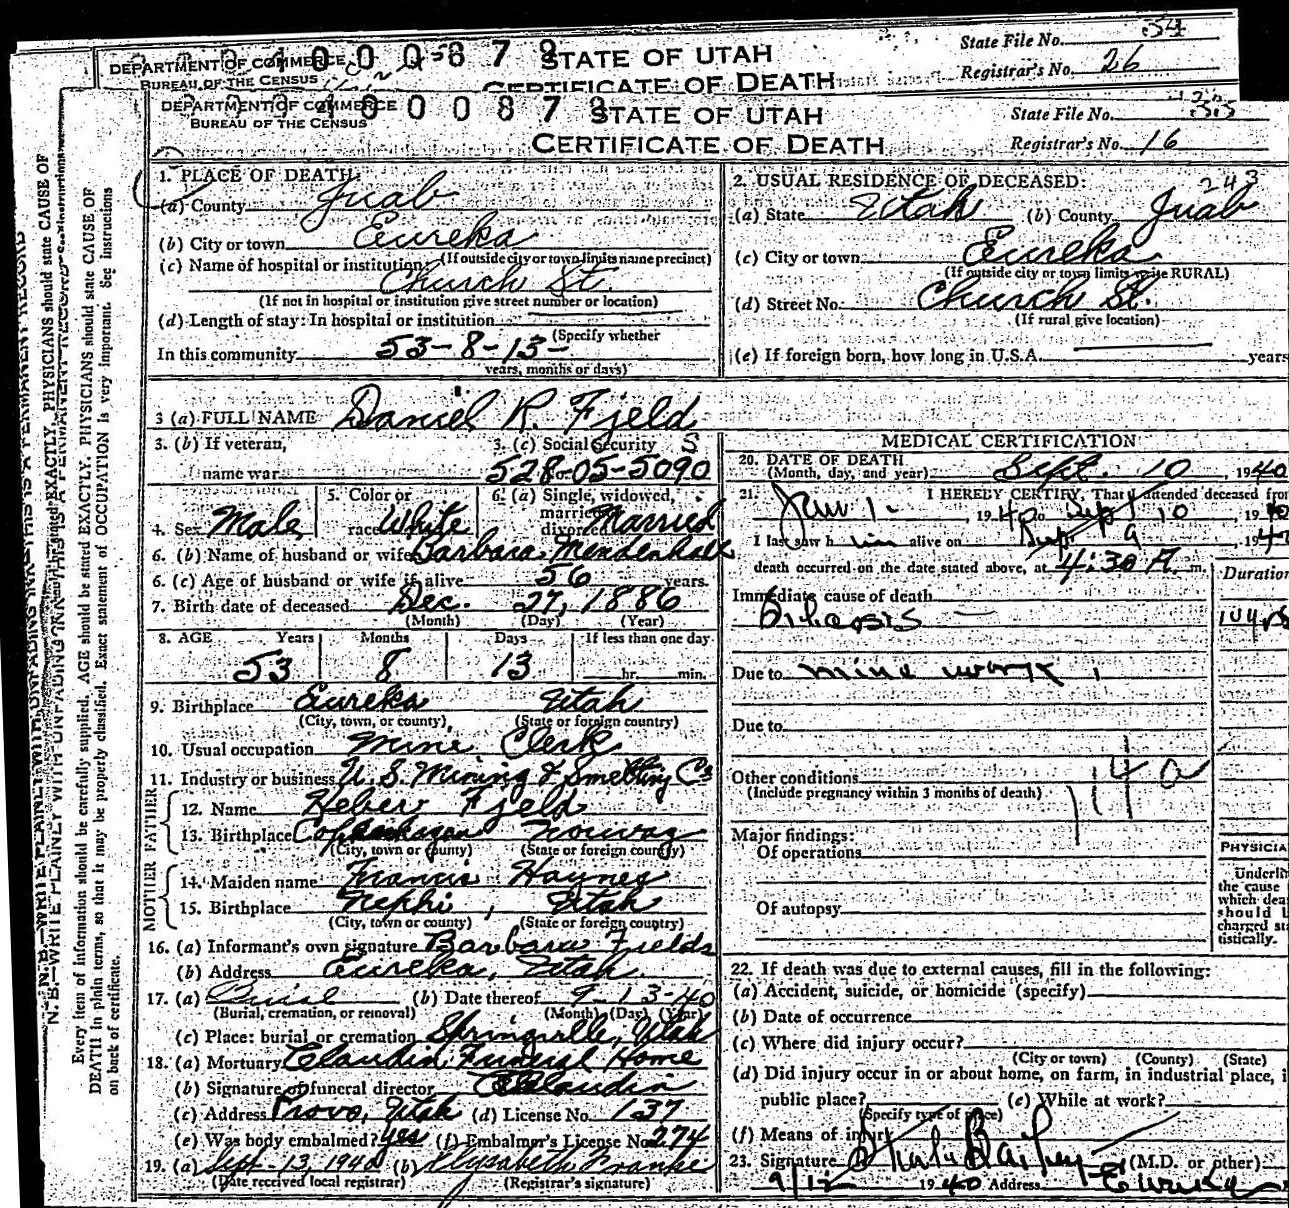 DEPARTMENT OF COMMERCE
BUREAU OF THE CENSUS
STATE OF UTAH
CERTIFICATE OF DEATH
State File No. 34
Registrar's No. 26
DEPARTMENT OF COMMERCE
BUREAU OF THE CENSUS
STATE OF UTAH
CERTIFICATE OF DEATH
State File No.
Registrar's No. 16
Every item of information should be carefully supplied. AGE should be stated EXACTLY. PHYSICIANS should state CAUSE OF
DEATH in plain terms, so that it may be properly classified. Exact statement of OCCUPATION is very important. See instructions
on back of certificate.
1. PLACE OF DEATH:
(a) County Juab
(b) City or town Eureka
(If outside city or town limits name precinct)
(c) Name of hospital or institution:
Church St.
(If not in hospital or institution give street number or location)
(d) Length of stay: In hospital or institution
(Specify whether
In this community 53-8-13-
years, months or days)
2. USUAL RESIDENCE OF DECEASED: 243
(a) State Utah (b) County Juab
(c) City or town Eureka
(If outside city or town limits write RURAL)
(d) Street No. Church St.
(If rural give location)
(e) If foreign born, how long in U.S.A. years
3 (a) FULL NAME Daniel R. Fjeld
3. (b) If veteran, name war
3. (c) Social Security
528-05-5090
4. Sex Male
5. Color or race White
6. (a) Single, widowed, married, divorced Married
6. (b) Name of husband or wife Barbara Mendenhall
6. (c) Age of husband or wife if alive 56 years.
7. Birth date of deceased Dec. 27, 1886
(Month) (Day) (Year)
8. AGE Years Months Days If less than one day
53 8 13 hr. min.
9. Birthplace Eureka Utah
(City, town, or county) (State or foreign country)
10. Usual occupation Mine Clerk
11. Industry or business U.S. Mining & Smelting Co
FATHER
12. Name Heber Fjeld
13. Birthplace Copenhagen Norway
(City, town or county) (State or foreign country)
MOTHER
14. Maiden name Francis Haynes
15. Birthplace Nephi, Utah
(City, town or county) (State or foreign country)
16. (a) Informant's own signature Barbara Fjelds
(b) Address Eureka, Utah
17. (a) Burial (b) Date thereof 9-13-40
(Burial, cremation, or removal) (Month) (Day) (Year)
(c) Place: burial or cremation Springville, Utah
18. (a) Mortuary Claudin Funeral Home
(b) Signature of funeral director Claudin
(c) Address Provo, Utah (d) License No. 137
(e) Was body embalmed? Yes (f) Embalmer's License No. 274
19. (a) Sept-13, 1940 (b) Elysabeth Franke
(Date received local registrar) (Registrar's signature)
MEDICAL CERTIFICATION
20. DATE OF DEATH
(Month, day, and year) Sept. 10 1940
21. I HEREBY CERTIFY, That I attended deceased from
Jan 1. , 1940 to Sept 10 , 1940
I last saw him alive on Sept 9 , 1940
death occurred on the date stated above, at 4:30 A. m.
Duration
Immediate cause of death
Silicosis 10 yrs
Due to mine work
Due to
Other conditions 114a
(Include pregnancy within 3 months of death)
Major findings:
Of operations
Of autopsy
PHYSICIA
Underli
the cause
which dea
should b
charged sta
tistically.
22. If death was due to external causes, fill in the following:
(a) Accident, suicide, or homicide (specify)
(b) Date of occurrence
(c) Where did injury occur?
(City or town) (County) (State)
(d) Did injury occur in or about home, on farm, in industrial place, i
public place? (e) While at work?
(Specify type of place)
(f) Means of injury
23. Signature Bailey (M.D. or other)
9/12 1940 Address Eureka